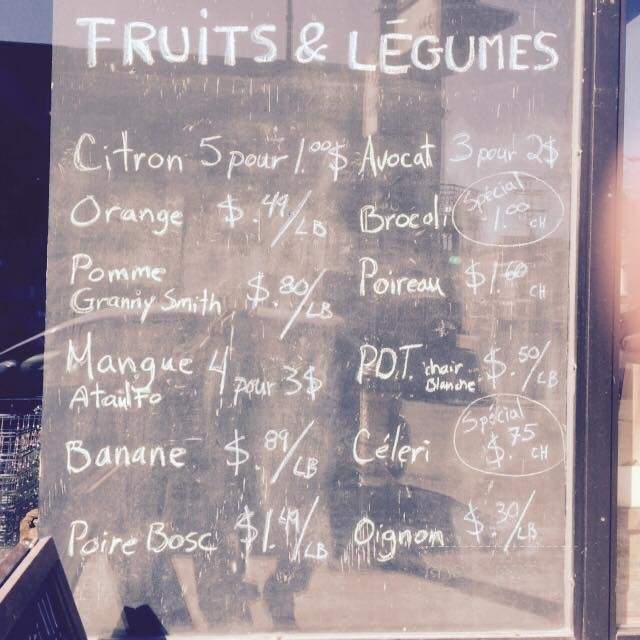 FRUITS & LÉGUMES
Citron 5 pour 1.00$
Orange $.49/LB
Pomme
Granny Smith $.80/LB
Mangue 4 pour 3$
Ataulfo
Banane $.89/LB
Poire Bosc $1.49/LB
Avocat 3 pour 2$
Brocoli Spécial
1.00 CH
Poireau $1.60 CH
PDT chair
Blanche $.50/LB
Céleri Spécial
$.75 CH
Oignon $.30/LB